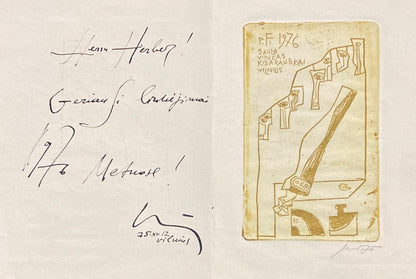 Herrn Herbert!
Geriausi linkėjimai
1976 Metuose!
75.XII.12
Vilnius
P.F. 1976
SAULĖ
VINCAS
KISARAUSKAI
VILNIUS
75